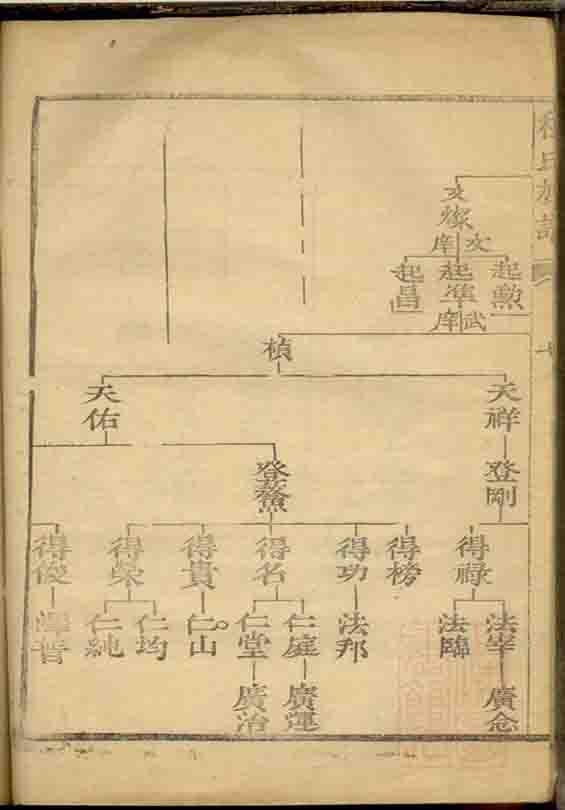 程氏族譜
七
文燦
文庠
起勲
起準
武庠
起昌
楨
天祥
天佑
登剛
登鰲
得祿
得榜
得功
得名
得貴
得榮
得俊
法宰
法臨
法邦
仁庭
仁堂
仁山
仁均
仁純
廣念
廣運
廣治